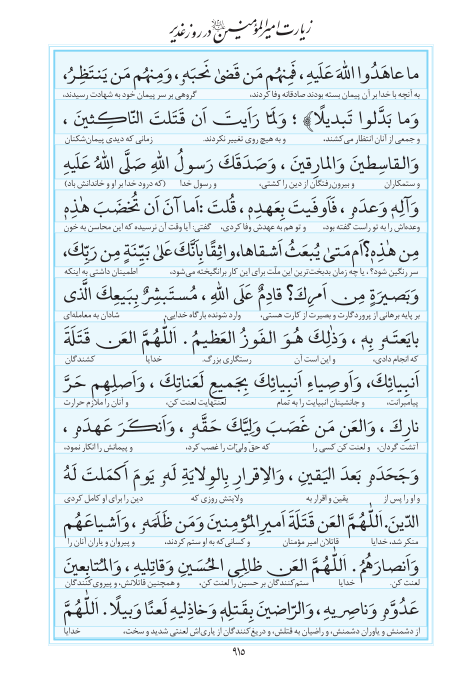 زیارت امیرالمؤمنین علیه‌السلام در روز غدیر
ما عاهَدُوا اللهَ عَلَيهِ ، فَمِنهُم مَن قَضىٰ نَحبَهُ ، وَمِنهُم مَن يَنتَظِرُ ،
به آنچه با خدا بر آن پیمان بسته بودند صادقانه وفا کردند، گروهی بر سر پیمان خود به شهادت رسیدند،
وَما بَدَّلوا تَبديلًا﴾ ؛ وَلَمّا رَأَيتَ أَن قَتَلتَ النّاكِثينَ ،
و جمعی از آنان انتظار می‌کشند، و به هیچ روی تغییر نکردند. زمانی که دیدی پیمان‌شکنان
وَالقاسِطينَ وَالمارِقينَ ، وَصَدَقَكَ رَسولُ اللهِ صَلَّى اللهُ عَلَيهِ
و ستمکاران و بیرون‌رفتگان از دین را کشتی، و رسول خدا (که درود خدا بر او و خاندانش باد)
وَآلِهِ وَعدَهُ ، فَأَوفَيتَ بِعَهدِهِ ، قُلتَ :أَما آنَ أَن تُخضَبَ هٰذِهِ
وعده‌اش را به تو راست گفته بود، و تو هم به عهدش وفا کردی. گفتی: آیا وقت آن نرسیده که این محاسن به خون
مِن هٰذِهِ؟أَم مَتىٰ يُبعَثُ أَشقاها،واثِقًا بِأَنَّكَ عَلىٰ بَيِّنَةٍ مِن رَبِّكَ،
سر رنگین شود؟، یا چه زمان بدبخت‌ترین این ملّت برای این کار برانگیخته می‌شود، اطمینان داشتی به اینکه
وَبَصيرَةٍ مِن أَمرِكَ؟ قادِمٌ عَلَى اللهِ ، مُستَبشِرٌ بِبَيعِكَ الَّذى
بر پایه برهانی از پروردگارت و بصیرت از کارت هستی. وارد شونده بارگاه خدایی، شادان به معامله‌ای
بايَعتَهُ بِهِ ، وَذٰلِكَ هُوَ الفَوزُ العَظيمُ . اَللّٰهُمَّ العَن قَتَلَةَ
که انجام دادی، و این است آن رستگاری بزرگ، خدایا کشندگان
أَنبِيائِكَ، وَأَوصِياءِ أَنبِيائِكَ بِجَميعِ لَعَناتِكَ ، وَأَصلِهِم حَرَّ
پیامبرانت، و جانشینان انبیایت را به تمام لعنتهایت لعنت کن، و آنان را ملازم حرارت
نارِكَ ، وَالعَن مَن غَصَبَ وَلِيَّكَ حَقَّهُ ، وَأَنكَرَ عَهدَهُ ،
آتشت گردان، و لعنت کن کسی را که حق ولیّ‌ات را غصب کرد، و پیمانش را انکار نمود،
وَجَحَدَهُ بَعدَ اليَقينِ ، وَالإِقرارِ بِالوِلايَةِ لَهُ يَومَ أَكمَلتَ لَهُ
و او را پس از یقین و اقرار به ولایتش روزی که دین را برای او کامل کردی
الدّينَ.اَللّٰهُمَّ العَن قَتَلَةَ أَميرِ المُؤمِنينَ وَمَن ظَلَمَهُ ، وَأَشياعَهُم
منکر شد، خدایا قاتلان امیر مؤمنان و کسانی که به او ستم کردند، و پیروان و یاران آنان را
وَأَنصارَهُم . اَللّٰهُمَّ العَن ظالِمِى الحُسَينِ وَقاتِليهِ ، وَالمُتابِعينَ
لعنت کن خدایا ستم‌کنندگان بر حسین را لعنت کن، و همچنین قاتلانش، و پیروی‌کنندگان
عَدُوَّهُ وَناصِريهِ ، وَالرّاضينَ بِقَتلِهِ وَخاذِليهِ لَعنًا وَبيلًا . اَللّٰهُمَّ
از دشمنش و یاوران دشمنش، و راضیان به قتلش، و دریغ‌کنندگان از یاری‌اش لعنتی شدید و سخت، خدایا
۹۱۵